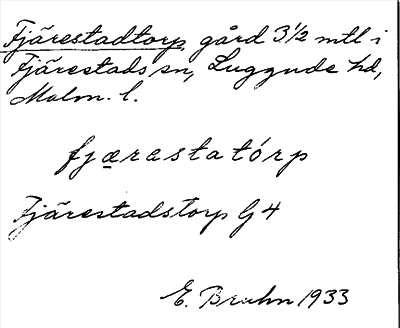 Fjärestadtorp gård 3½ mtl i
Fjärestads sn, Luggude hd,
Malm. l.
fjærastatórp
Fjärestadstorp G4
E. Bruhn 1933